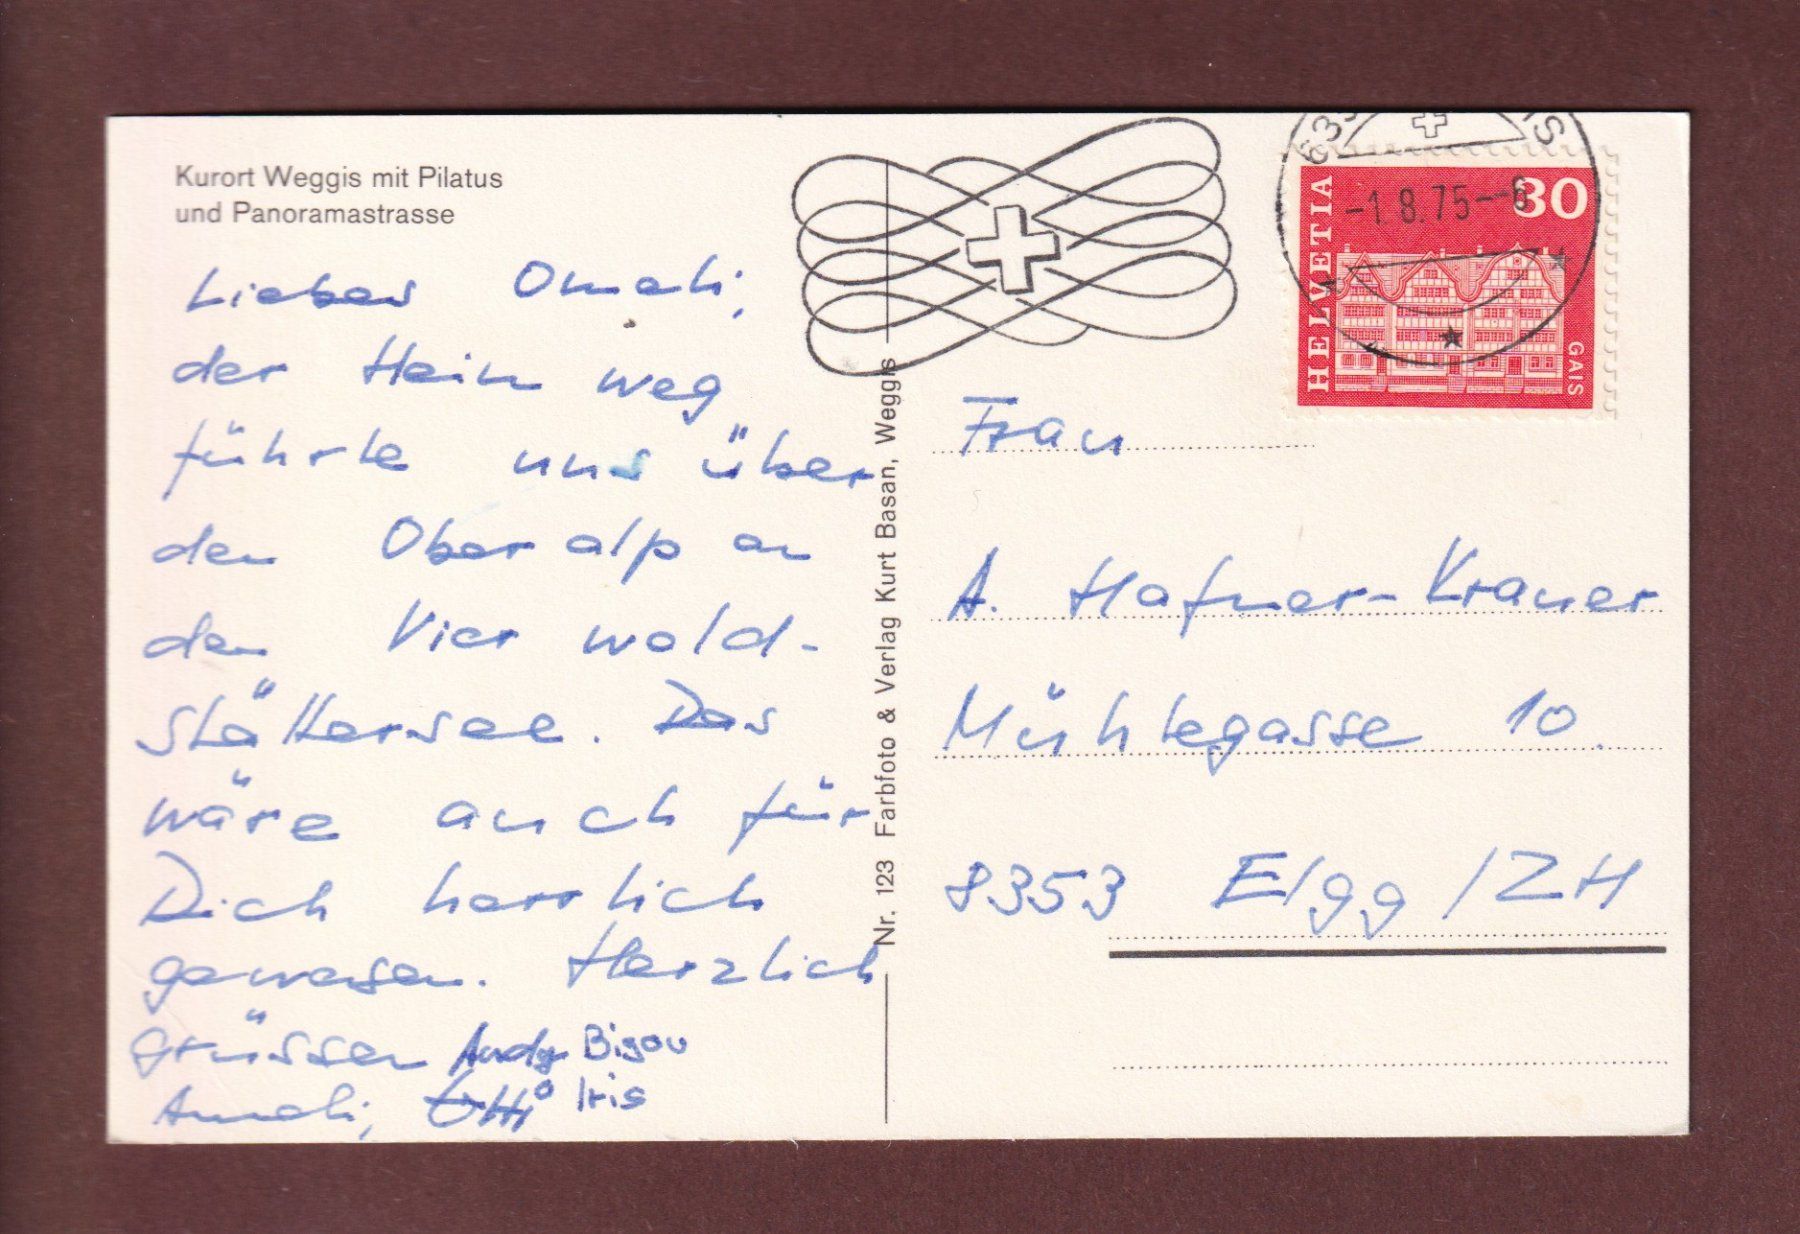 Kurort Weggis mit Pilatus
und Panoramastrasse
Liebes Omali,
der Heimweg
führte uns über
den Oberalp an
den Vierwald-
stättersee. Das
wäre auch für
Dich herrlich
gewesen. Herzlich
grüssen Andy
Amali, Otti Iris
Nr. 123 Farbfoto & Verlag Kurt Basan, Weggis
-1.8.75--6
HELVETIA
30
GAIS
Frau
A. Hafner-Krauer
Mühlegasse 10.
8353 Elgg/ZH